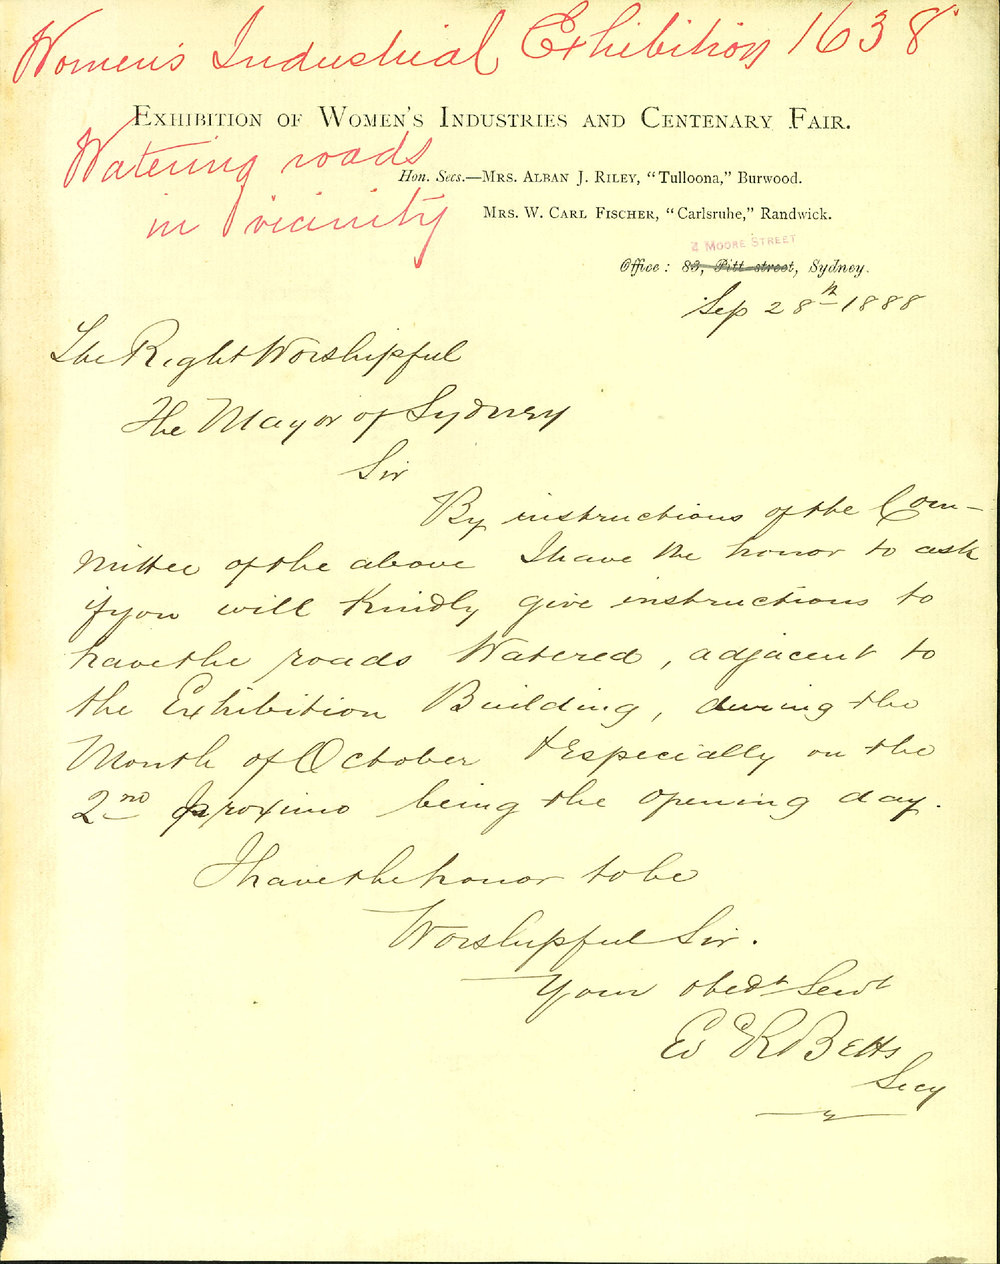 Women's Industrial Exhibition 1638
EXHIBITION OF WOMEN'S INDUSTRIES AND CENTENARY FAIR.
Watering roads
in vicinity
Hon. Secs.—MRS. ALBAN J. RILEY, "Tulloona," Burwood.
MRS. W. CARL FISCHER, "Carlsruhe," Randwick.
4 MOORE STREET
Office: 83, Pitt-street, Sydney.
Sep 28th 1888
The Right Worshipful
The Mayor of Sydney
Sir
By instructions of the Com-
mittee of the above I have the honor to ask
if you will Kindly give instructions to
have the roads Watered, adjacent to
the Exhibition Building, during the
Month of October & Especially on the
2nd proximo being the opening day.
I have the honor to be
Worshipful Sir.
Your obedt Servt
Ed R Betts
Secy